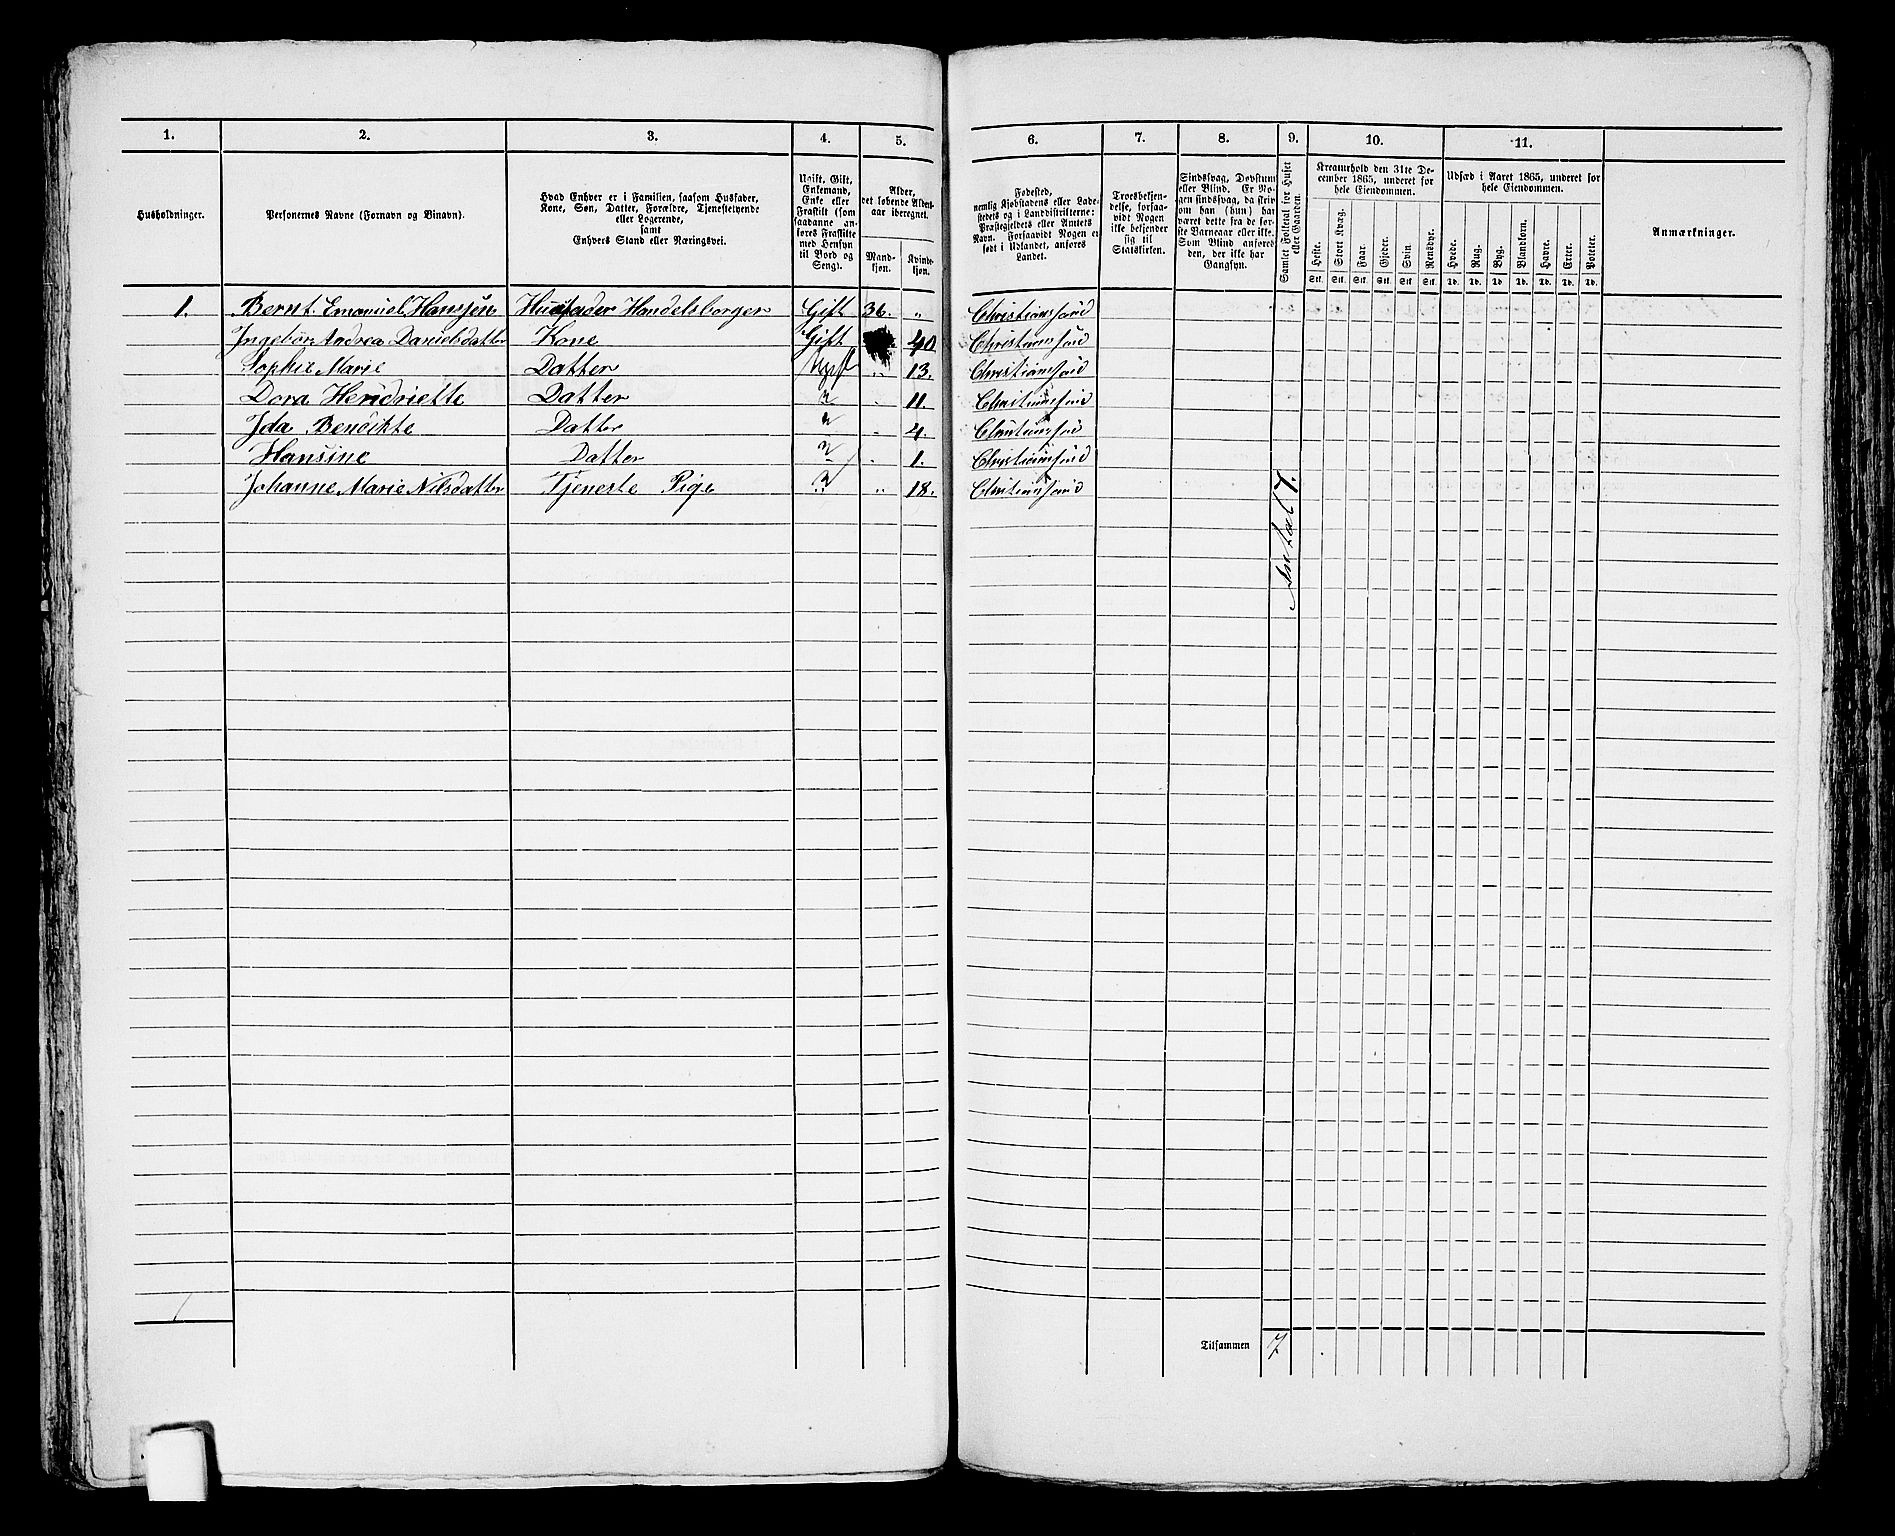 1. 2. 3. 4. 5. 6. 7. 8. 9. 10. 11.
Husholdninger.
Personernes Navne (Fornavn og Binavn).
Hvad Enhver er i Familien, saasom Husfader,
Kone, Søn, Datter, Forældre, Tjenestetyende
eller Logerende,
samt
Enhvers Stand eller Næringsvei.
Ugift, Gift,
Enkemand,
Enke eller
Fraskilt (som
saadanne an-
føres Fraskilte
med Hensyn
til Bord og
Seng).
Alder,
det løbende Alders-
aar iberegnet.
Mand-
kjøn.
Kvinde-
kjøn.
Fødested,
nemlig Kjøbstadens eller Lade-
stedets og i Landdistrikterne:
Præstegjeldets eller Amtets
Navn. Forsaavidt Nogen er
født i Udlandet, anføres
Landet.
Troesbekjen-
delse, forsaa-
vidt Nogen
ikke bekjender
sig til
Statskirken.
Sindssvag, Døvstum
eller Blind. Er No-
gen sindssvag, da skriv
om han (hun) har
været dette fra de før-
ste Barneaar eller ikke.
Som Blind anføres
den, der ikke har
Gangsyn.
Samlet Folketal for Huset
eller Gaarden.
Kreaturhold den 31te De-
cember 1865, underet for
hele Eiendommen.
Heste. Stort Kvæg. Faar. Gjeder. Svin. Rensdyr.
Stk. Stk. Stk. Stk. Stk. Stk.
Udsæd i Aaret 1865, underet for
hele Eiendommen.
Hvede. Rug. Byg. Blandkorn. Havre. Erter. Poteter.
Td. Td. Td. Td. Td. Td. Td.
Anmærkninger.
1. Bernt Emanuel Hanssen Husfader Handelsborger Gift 36. „ Christianssand
Ingebor Andrea Danielsdatter Kone Gift 40 Christianssand
Sophie Marie Datter Ugift „ 13. Christianssand
Dora Hendriette Datter " 11. Christianssand
Ida Bendikte Datter " 4. Christianssand
Hansine Datter " 1. Christianssand
Johanne Marie Nilsdatter Tjeneste Pige " „ 18. Christianssand
Antal 7.
1
Tilsammen 7